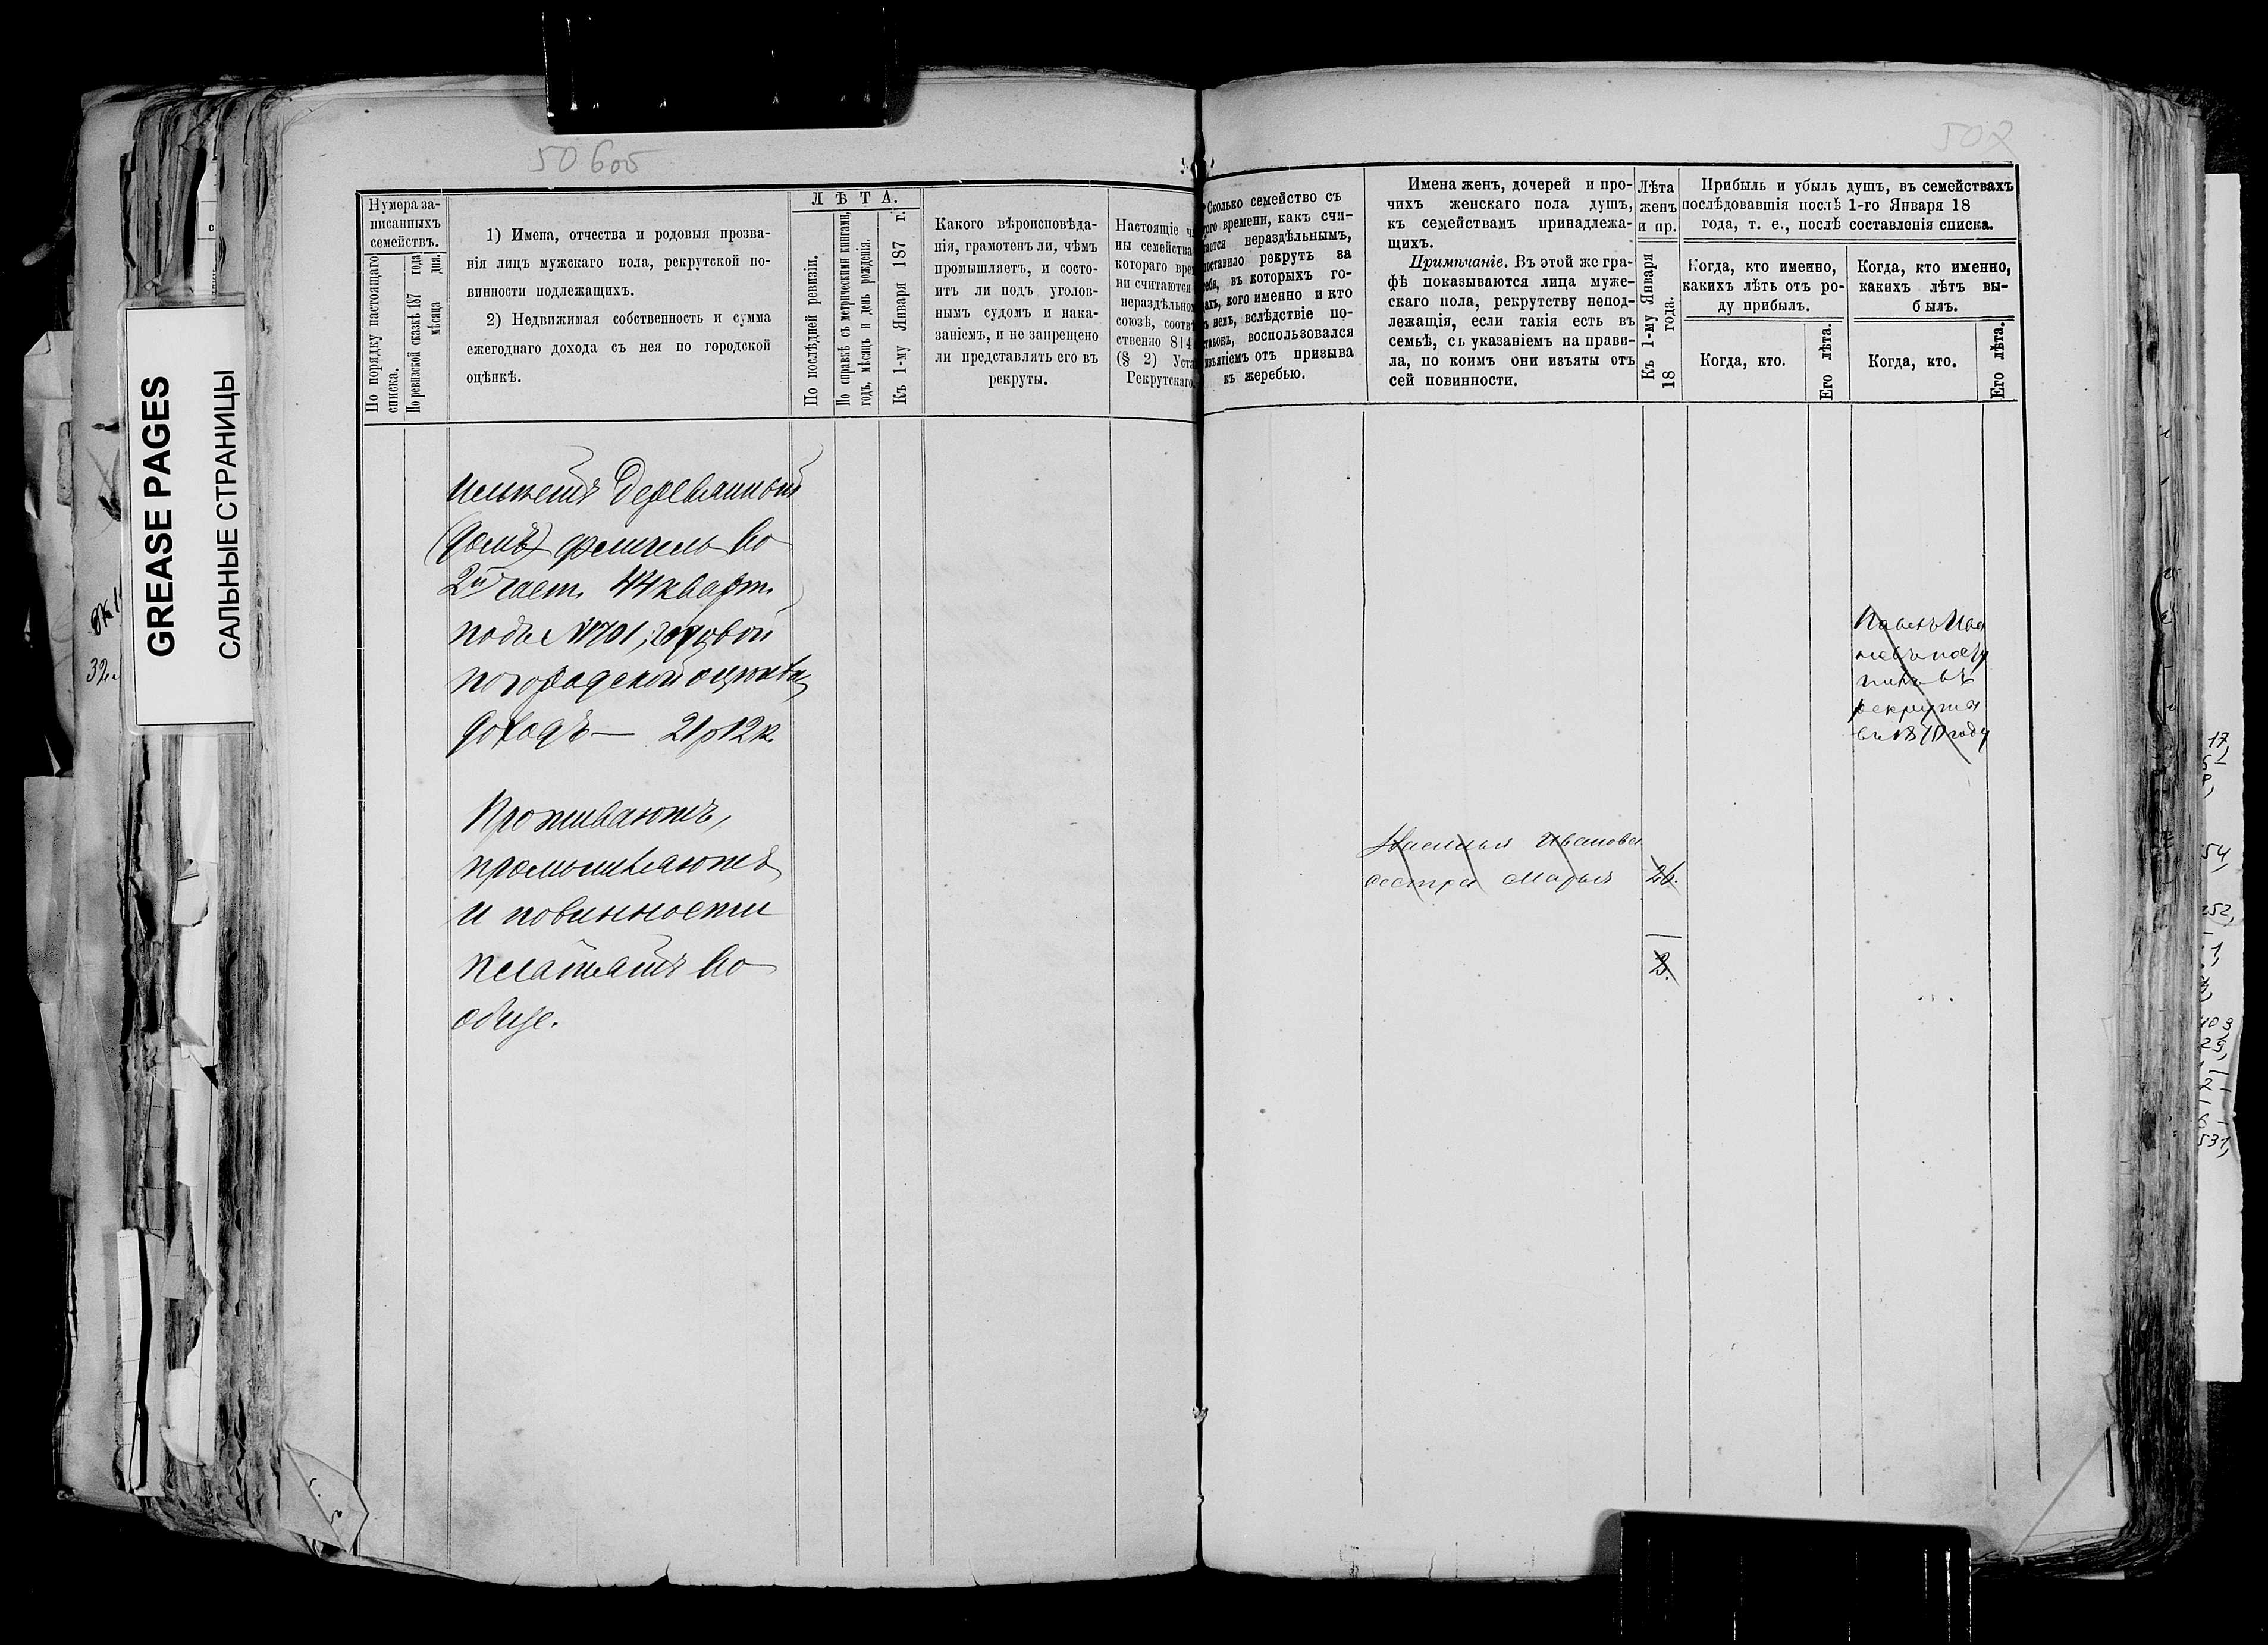 50 боб
502
GREASE PAGES
САЛЬНЫЕ СТРАНИЦЫ
Нумера за-
писанныхъ
семействъ.
По порядку настоящаго
списка.
По ревизской сказкѣ 187 года
мѣсяца дня.
1) Имена, отчества и родовыя прозва-
нія лицъ мужскаго пола, рекрутской по-
винности подлежащихъ.
2) Недвижимая собственность и сумма
ежегоднаго дохода съ нея по городской
оцѣнкѣ.
ЛѢТА.
По послѣдней ревизіи.
По справкѣ съ метрическими книгами,
годъ, мѣсяцъ и день рожденія.
Къ 1-му Января 187 г.
Какого вѣроисповѣда-
нія, грамотенъ ли, чѣмъ
промышляетъ, и состо-
итъ ли подъ уголов-
нымъ судомъ и нака-
заніемъ, и не запрещено
ли представлять его въ
рекруты.
Настоящіе
ны семейства
котораго вре
ни считаются
нераздѣльно
союзѣ, соотвѣ
ственно 814
(§ 2) Уста
Рекрутскаго
Сколько семейство съ
того времени, какъ счи-
тается нераздѣльнымъ,
поставило рекрутъ за
себя, въ которыхъ го-
дахъ, кого именно и кто
въ немъ, вслѣдствіе по-
воспользовался
изъятіемъ отъ призыва
къ жеребью.
Имена женъ, дочерей и про-
чихъ женскаго пола душъ,
къ семействамъ принадлежа-
щихъ.
Примѣчаніе. Въ этой же гра-
фѣ показываются лица муже-
скаго пола, рекрутству непод-
лежащія, если такія есть въ
семьѣ, съ указаніемъ на прави-
ла, по коимъ они изъяты отъ
сей повинности.
Лѣта
женъ
и пр.
Къ 1-му Января
18 года.
Прибыль и убыль душъ, въ семействахъ
послѣдовавшія послѣ 1-го Января 18
года, т. е., послѣ составленія списка.
Когда, кто именно,
какихъ лѣтъ отъ ро-
ду прибылъ.
Когда, кто.
Его лѣта.
Когда, кто именно,
какихъ лѣтъ вы-
былъ.
Когда, кто.
Его лѣта.
Имѣетъ деревянный
(домъ) флигель во
2й част. 44 кварт.
подъ № 701, годовой
по городской оцѣнкѣ
доходъ — 21 р 12 к.
Проживаютъ,
промышляютъ
и повинности
платятъ во
обще.
Ивановы
сестра Марья 26.
3.
Павелъ Ива
новъ посту
пилъ въ
рекруты
въ 1870 году